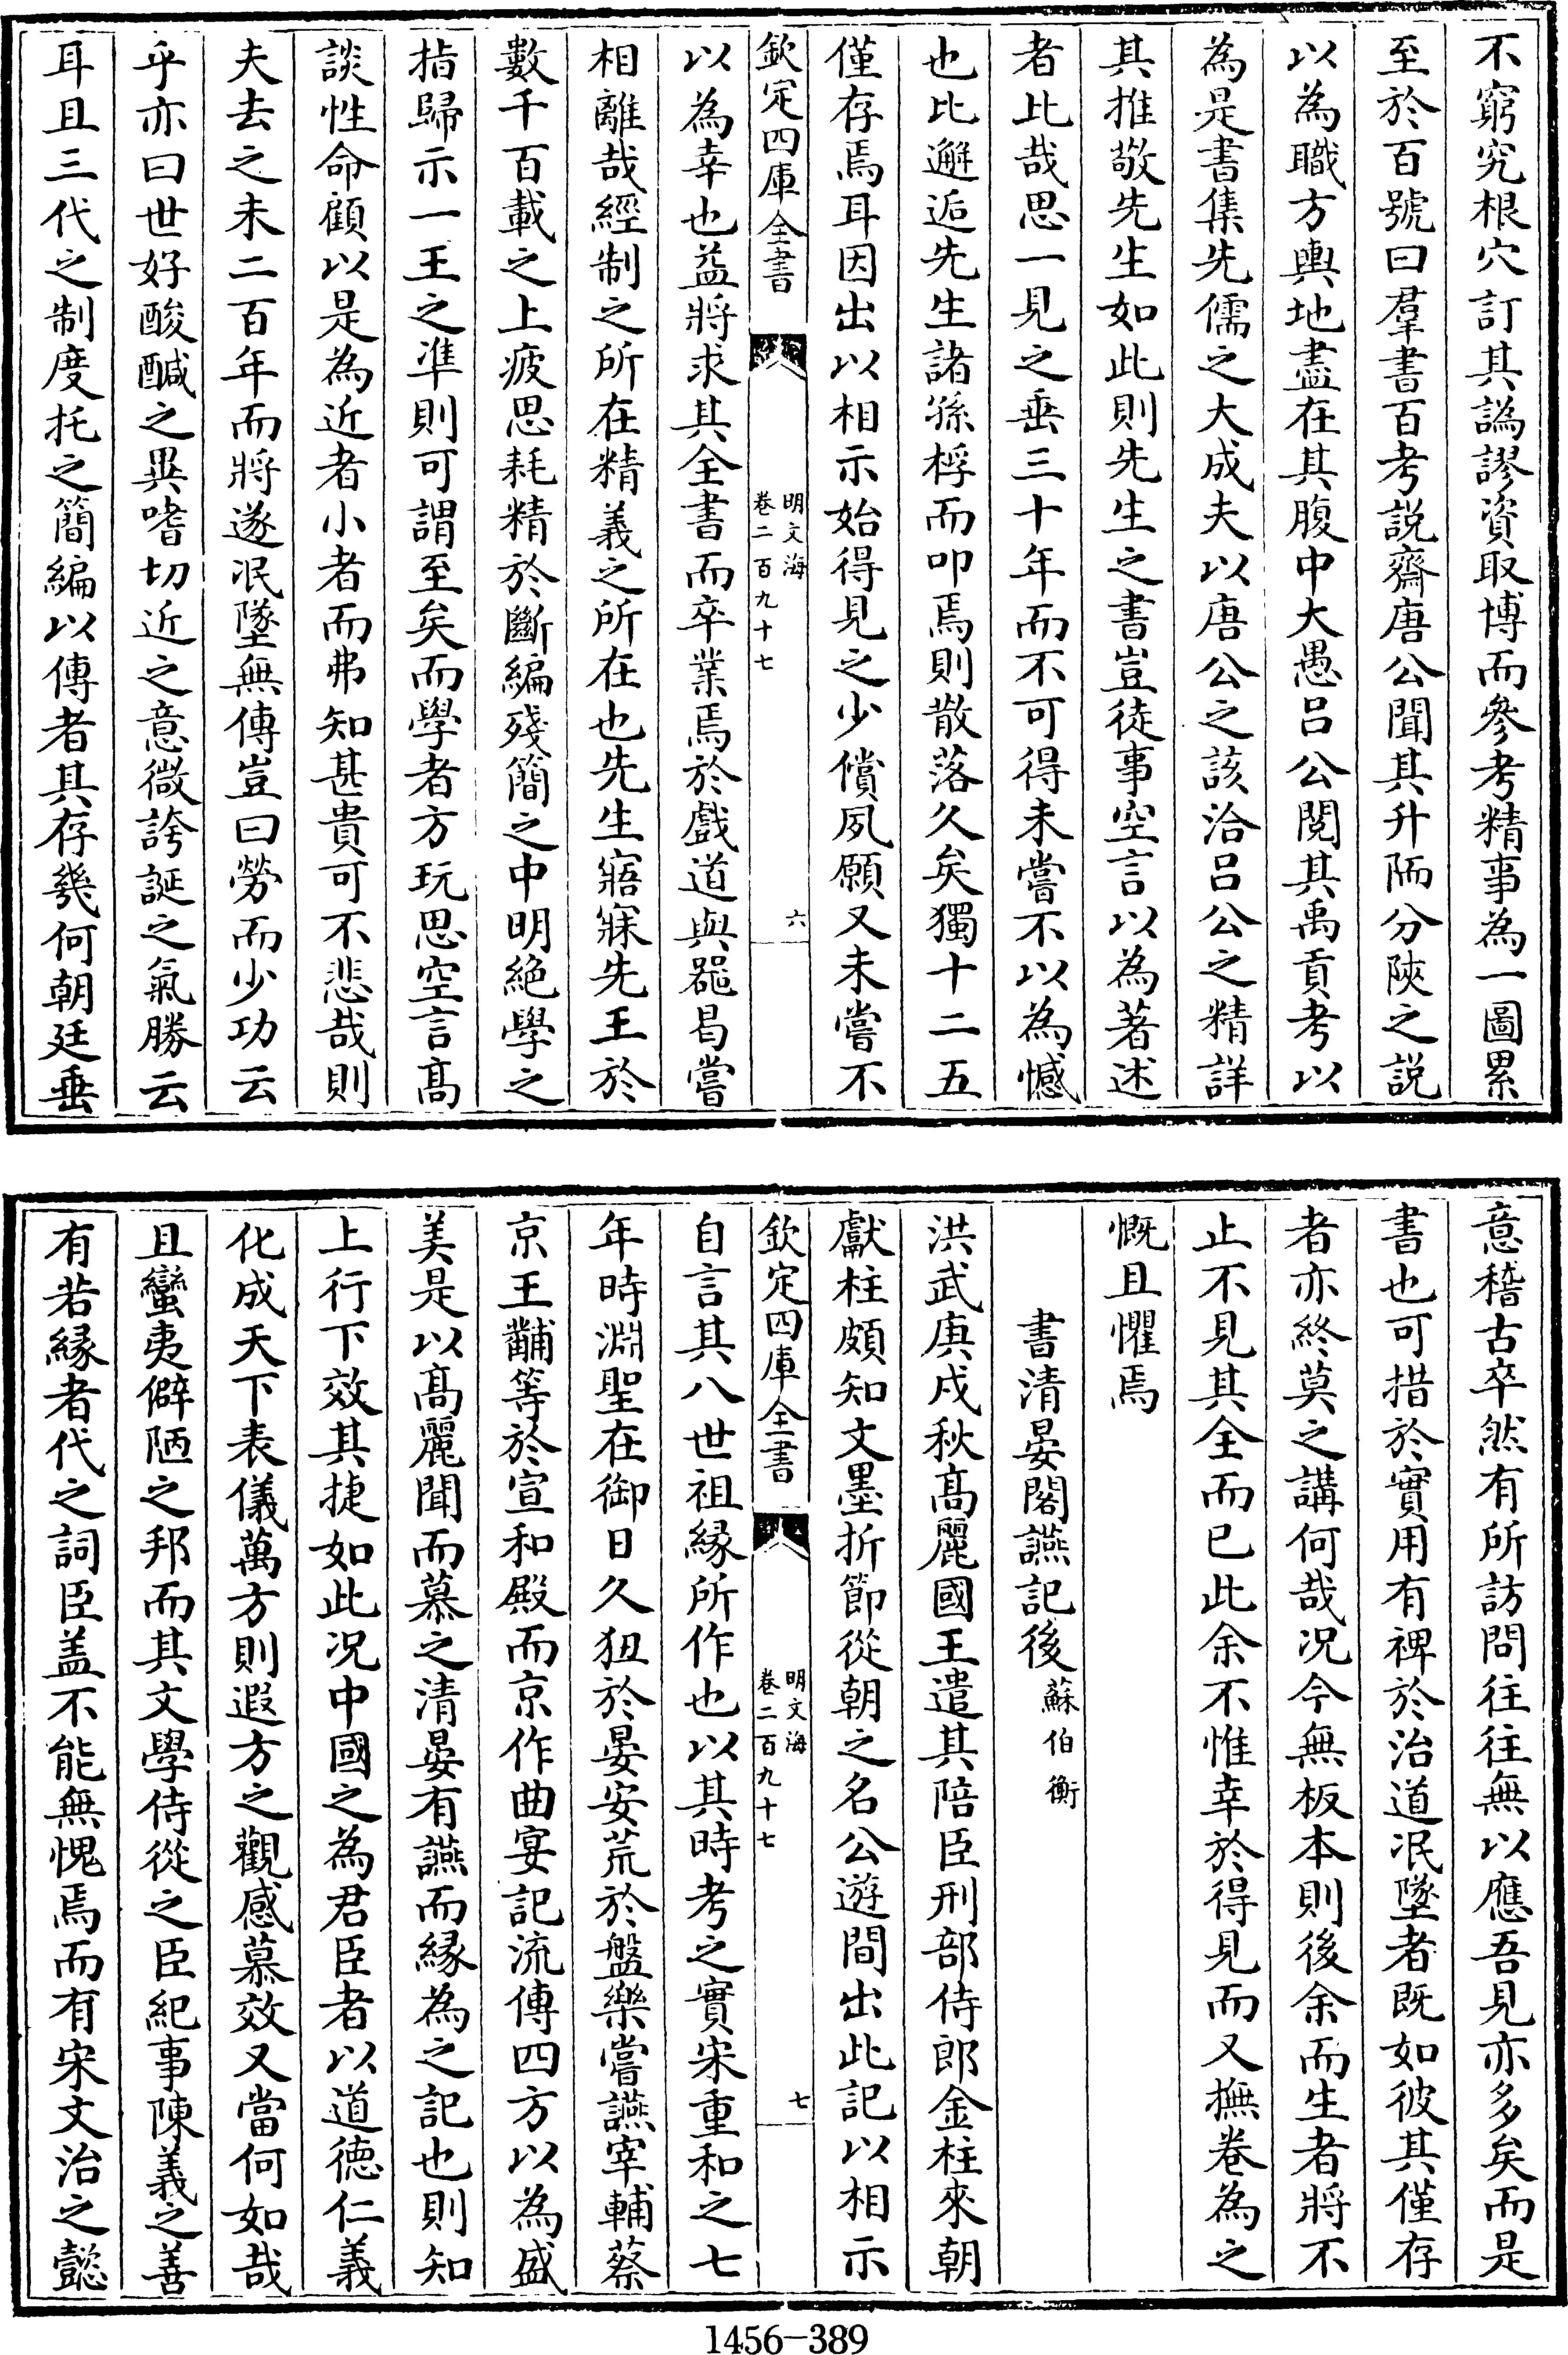 不窮究根穴訂其譌謬資取博而參考精事為一圖累
至於百號曰羣書百考説齋唐公聞其升陑分陜之説
以為職方輿地盡在其腹中大愚吕公閲其禹貢考以
為是書集先儒之大成夫以唐公之該洽吕公之精詳
其推敬先生如此則先生之書豈徒事空言以為著述
者比哉思一見之垂三十年而不可得未嘗不以為憾
也比邂逅先生諸孫桴而叩焉則散落久矣獨十二五
僅存焉耳因出以相示始得見之少償夙願又未嘗不
欽定四庫全書
明文海
卷二百九十七
六
以為幸也益將求其全書而卒業焉於戲道與噐曷嘗
相離哉經制之所在精義之所在也先生寤寐先王於
數千百載之上疲思耗精於斷編殘簡之中明絶學之
指歸示一王之準則可謂至矣而學者方玩思空言高
談性命顧以是為近者小者而弗知甚貴可不悲哉則
夫去之未二百年而將遂泯墜無傳豈曰勞而少功云
乎亦曰世好酸醎之異嗜切近之意微誇誕之氣勝云
耳且三代之制度托之簡編以傳者其存幾何朝廷垂
意稽古卒然有所訪問往往無以應吾見亦多矣而是
書也可措於實用有禆於治道泯墜者既如彼其僅存
者亦終莫之講何哉况今無板本則後余而生者將不
止不見其全而已此余不惟幸於得見而又撫卷為之
慨且懼焉
書清晏閣讌記後 蘇伯衡
洪武庚戌秋髙麗國王遣其陪臣刑部侍郎金柱來朝
獻柱頗知文墨折節從朝之名公遊間出此記以相示
欽定四庫全書
明文海
卷二百九十七
七
自言其八世祖縁所作也以其時考之實宋重和之七
年時淵聖在御日久狃於晏安荒於盤樂嘗讌宰輔蔡
京王黼等於宣和殿而京作曲宴記流傳四方以為盛
美是以髙麗聞而慕之清晏有讌而縁為之記也則知
上行下效其捷如此况中國之為君臣者以道德仁義
化成天下表儀萬方則遐方之觀感慕效又當何如哉
且蠻夷僻陋之邦而其文學侍從之臣紀事陳義之善
有若縁者代之詞臣盖不能無愧焉而有宋文治之懿
1456-389